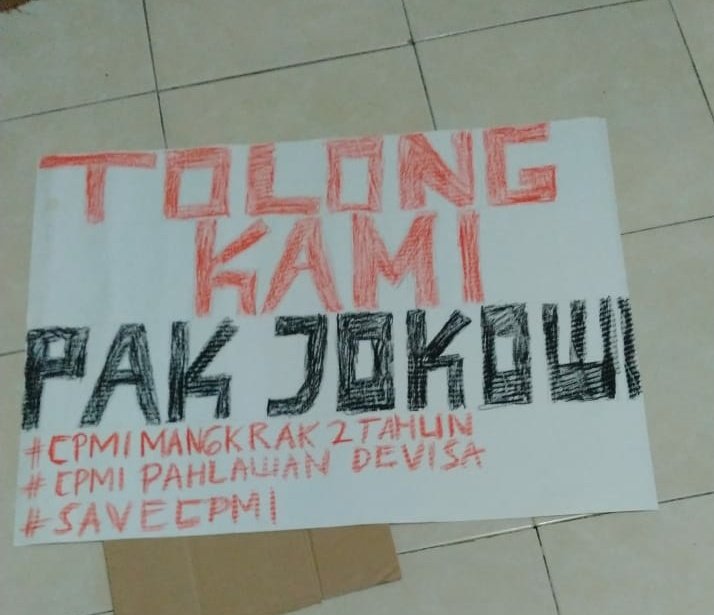 TOLONG
KAMI
PAK JOKOWI
#CPMI MANGKRAK 2 TAHUN
#CPMI PAHLAWAN DEVISA
#SAVECPMI